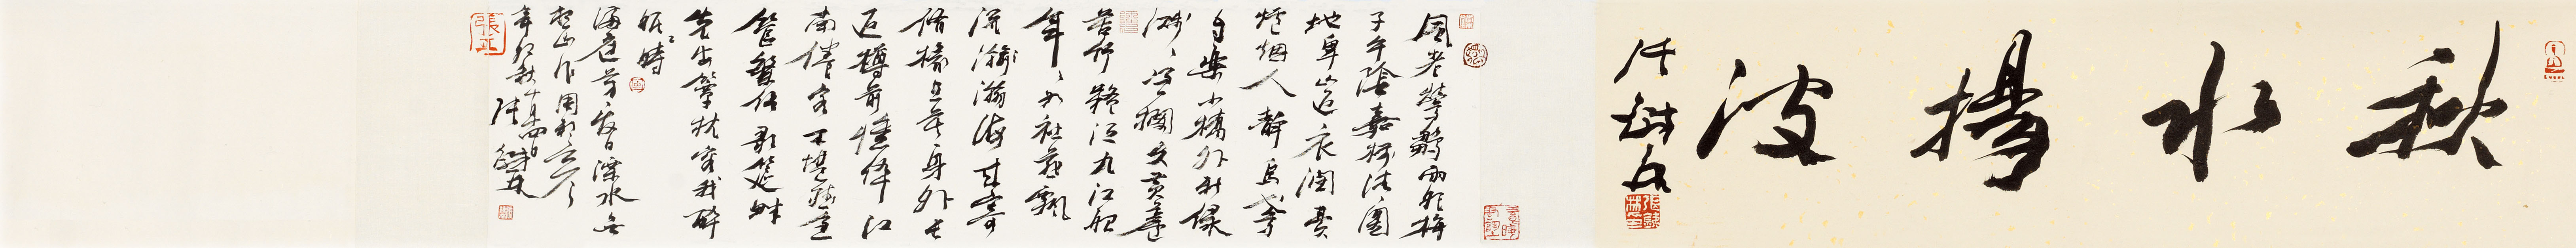 秋水揚波
张铁林
風老鶯雛雨肥梅
子午陰嘉樹清圓
地卑山近衣潤費
爐烟人靜烏鳶
自樂小橋外新綠
濺〻凭欄久黃蘆
苦竹疑泛九江船
年〻如社燕飄
流瀚海來寄
修椽且莫思身外長
近樽前憔悴江
南倦客不堪聽急
管繁弦歌筵畔
先安簟枕容我醉
眠時
滿庭芳夏日溧水無
想山作周邦彥
辛卯秋十月四日
张铁林